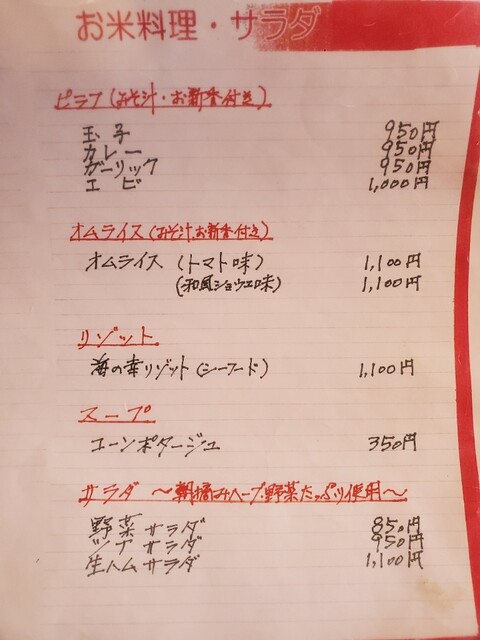 お米料理・サラダ
ピラフ(みそ汁・お新香付き)
玉子 950円
カレー 950円
ガーリック 950円
エビ 1,000円
オムライス(みそ汁.お新香付き)
オムライス (トマト味) 1,100円
(和風ショウユ味) 1,100円
リゾット
海の幸リゾット(シーフード) 1,100円
スープ
コーンポタージュ 350円
サラダ ～朝摘みハーブ・野菜たっぷり使用～
野菜サラダ 850円
ツナサラダ 950円
生ハムサラダ 1,100円